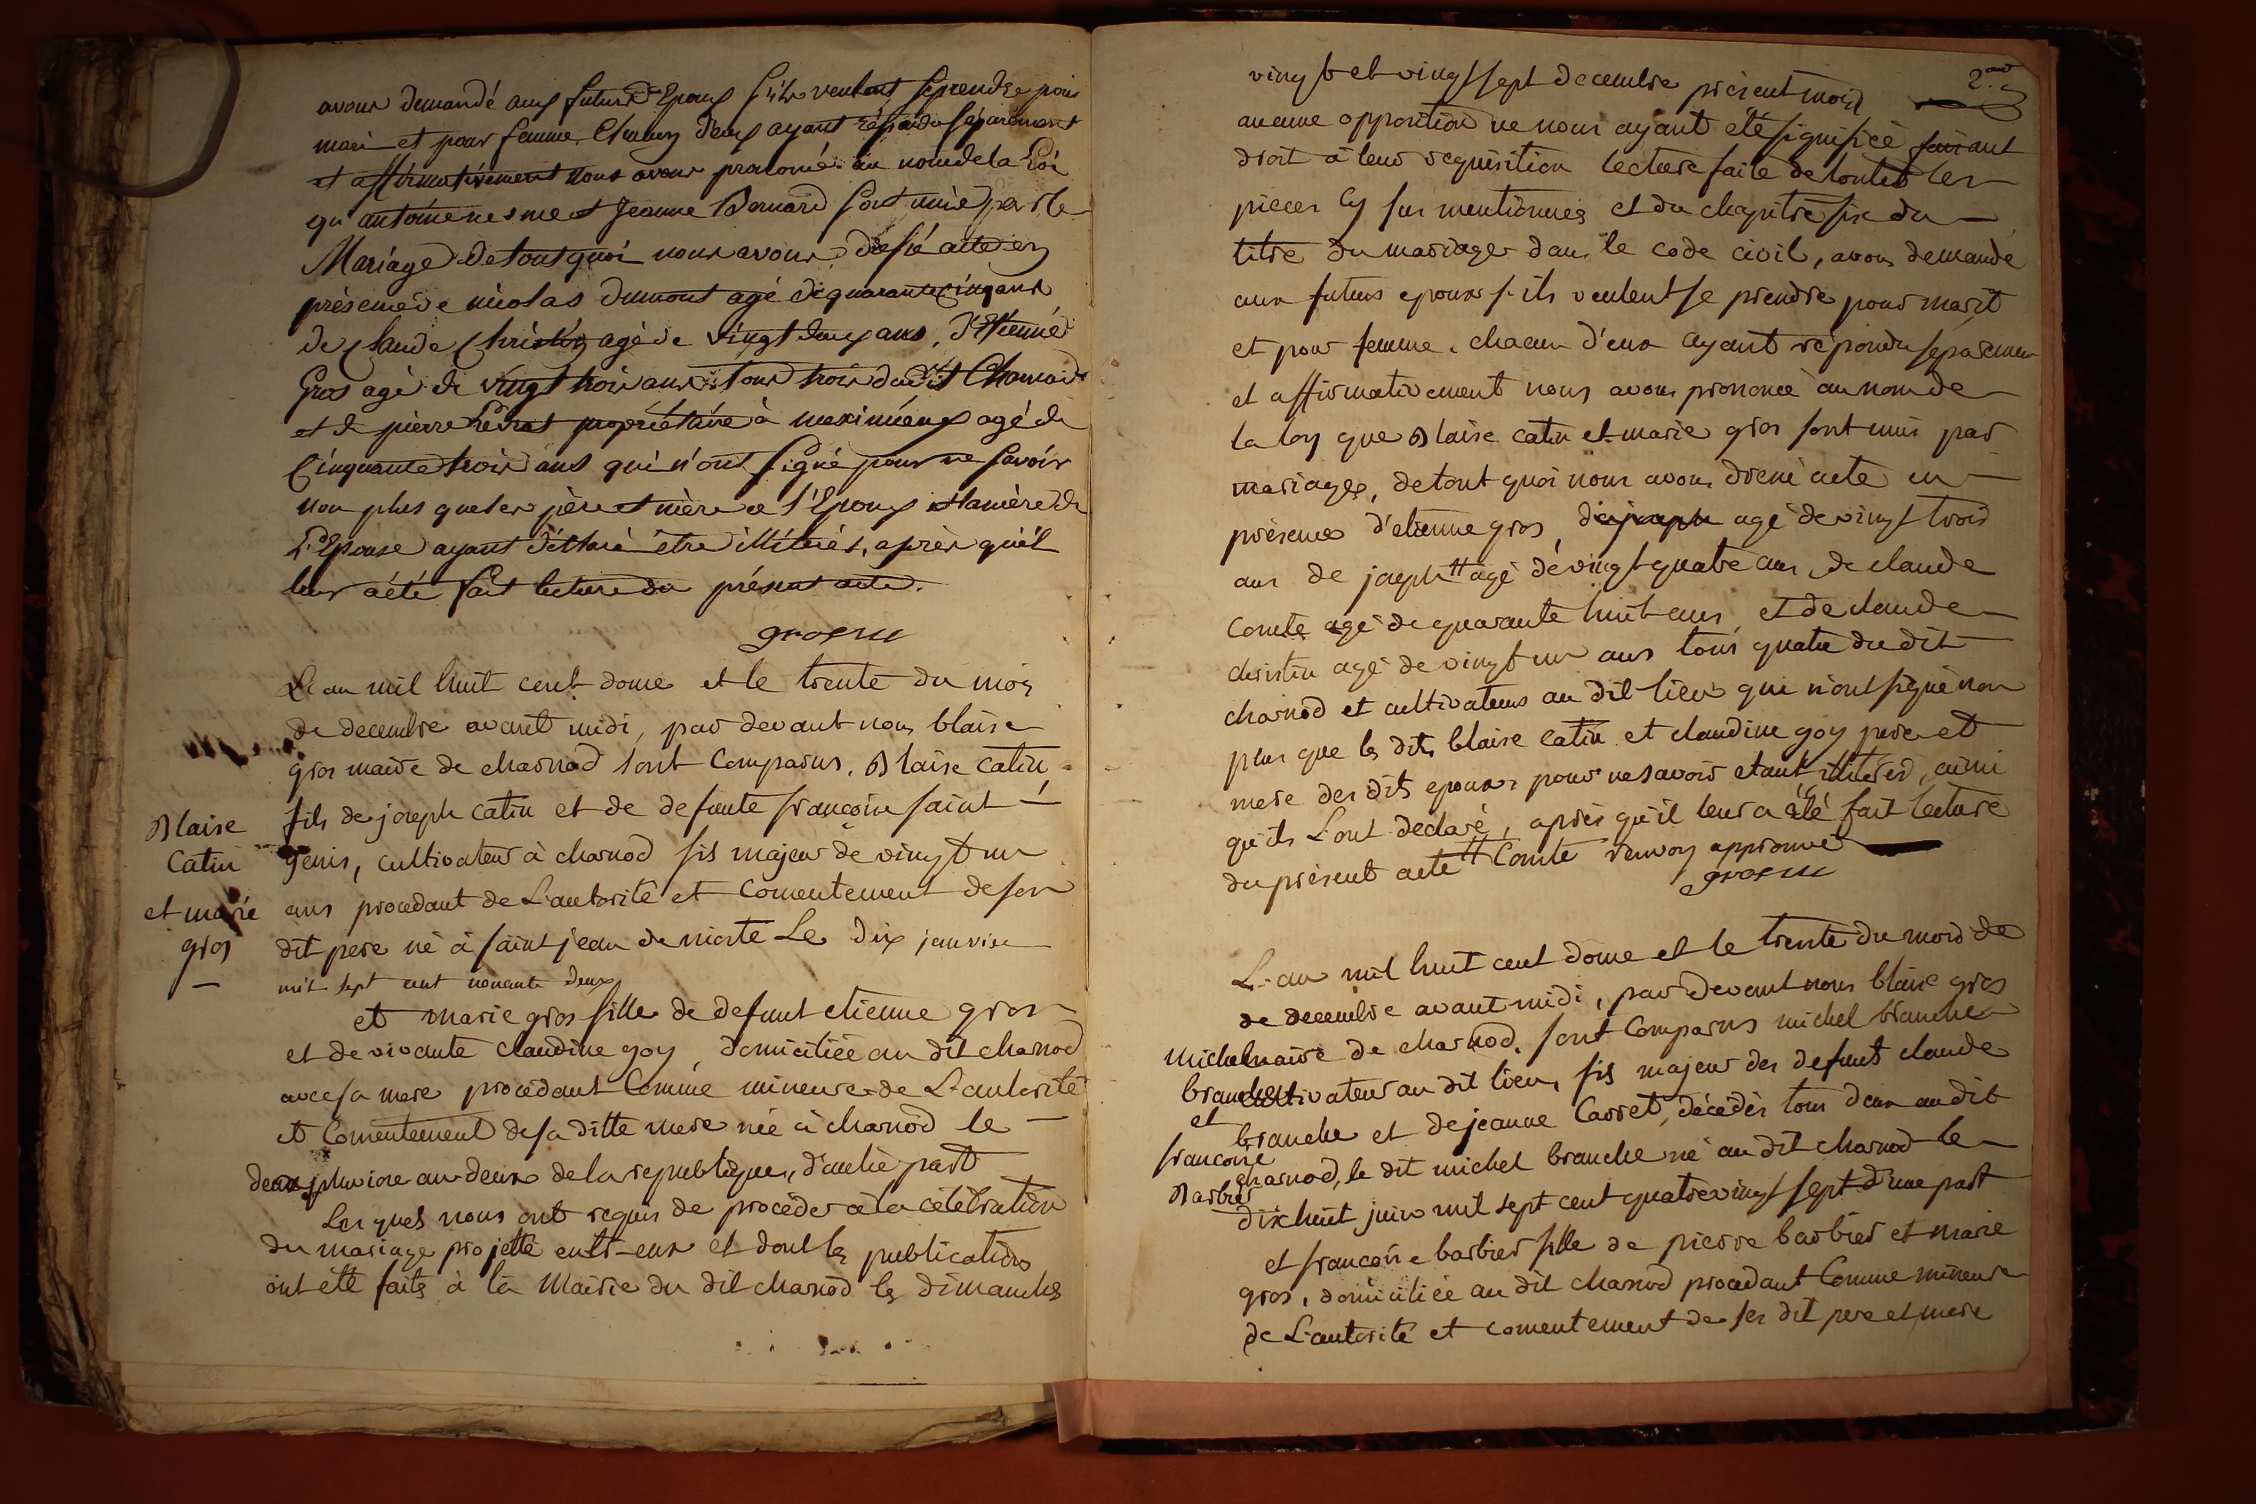 avons demandé aux futurs Epoux s'ils veulent se prendre pour
mari et pour femme. Chacun d'eux ayant répondu séparément
et affirmativement nous avons prononcé au nom de la Loi
qu'antoine nesme et Jeanne Bernard sont unis par le
Mariage De tout quoi nous avons dressé acte en
présence de nicolas dumont agé de quarante cinq ans
de Claude Christin agé de vingt deux ans, d'Etienne
Gros agé de vingt trois ans tous trois dudit Charnod
et de pierre propriétaire à agé de
Cinquante trois ans qui n'ont signé pour ne savoir
non plus que les père et mère de l'Epoux et la mère de
L'Epouse ayant déclaré être illitérés, après qu'il
leur a été fait lecture du présent acte.
gros m
L'an mil huit cent douze et le trente du mois
de decembre avant midi, par devant nous blaise
gros maire de charnod sont comparus. Blaise catin
fils de joseph catin et de defunte françoise saint
genis, cultivateur à charnod fils majeur de vingt un
ans procedant de L'autorité et consentement de son
dit pere né à saint jean de Le dix janvier
mil sept cent nonante deux
Blaise
Catin
et marie
gros
et marie gros fille de defunt etienne gros
et de vivante claudine goy, domiciliée au dit charnod
avec sa mere procedant comme mineure de L'autorité
et consentement de sa ditte mere née à charnod le
deux pluviose an deux de la republique, d'autre part
Lesquels nous ont requis de procéder à la célébration
du mariage projetté entr-eux et dont les publications
ont été faites à la Mairie du dit charnod les dimanches
2.
vingt et vingt sept decembre présent mois
aucune opposition ne nous ayant été signifiée faisant
droit à leur requisition lecture faite de toutes les
pieces cy sus mentionnées et du chapitre six du
titre du mariage dans le code civil, avons demandé
aux futurs epoux s'ils veulent se prendre pour marit
et pour femme. chacun d'eux ayant répondu séparemen
et affirmativement nous avons prononcé au nom de
la loy que Blaise catin et marie gros sont unis par
mariage, de tout quoi nous avons dressé acte en
présence d'etienne gros, agé de vingt trois
ans de joseph # agé de vingt quatre ans, de claude
comte agé de quarante huit ans, et de claude
christin agé de vingt un ans tous quatre du dit
charnod et cultivateurs au dit lieu qui n'ont signé non
plus que les dits blaise catin et claudine goy pere et
mere des dits epoux pour ne savoir etant illitérés, ainsi
qu'ils L'ont declaré, après qu'il leur a été fait lecture
du présent acte # Comte renvoy approuvé
gros m
L'an mil huit cent douze et le trente du mois de
de decembre avant midi, par devant nous blaise gros
maire de charnod. sont comparus michel branche
cultivateur au dit lieu, fils majeur des defunt claude
branche et de jeanne Carret, décédés tous deux au dit
charnod, le dit michel branche né au dit charnod le
dix huit juin mil sept cent quatre vingt sept d'une part
michel
branche
et
francoise
Barbier
et francoise barbier fille de pierre barbier et marie
gros, domiciliée au dit charnod procedant comme mineure
de L'autorité et consentement de ses dit pere et mere